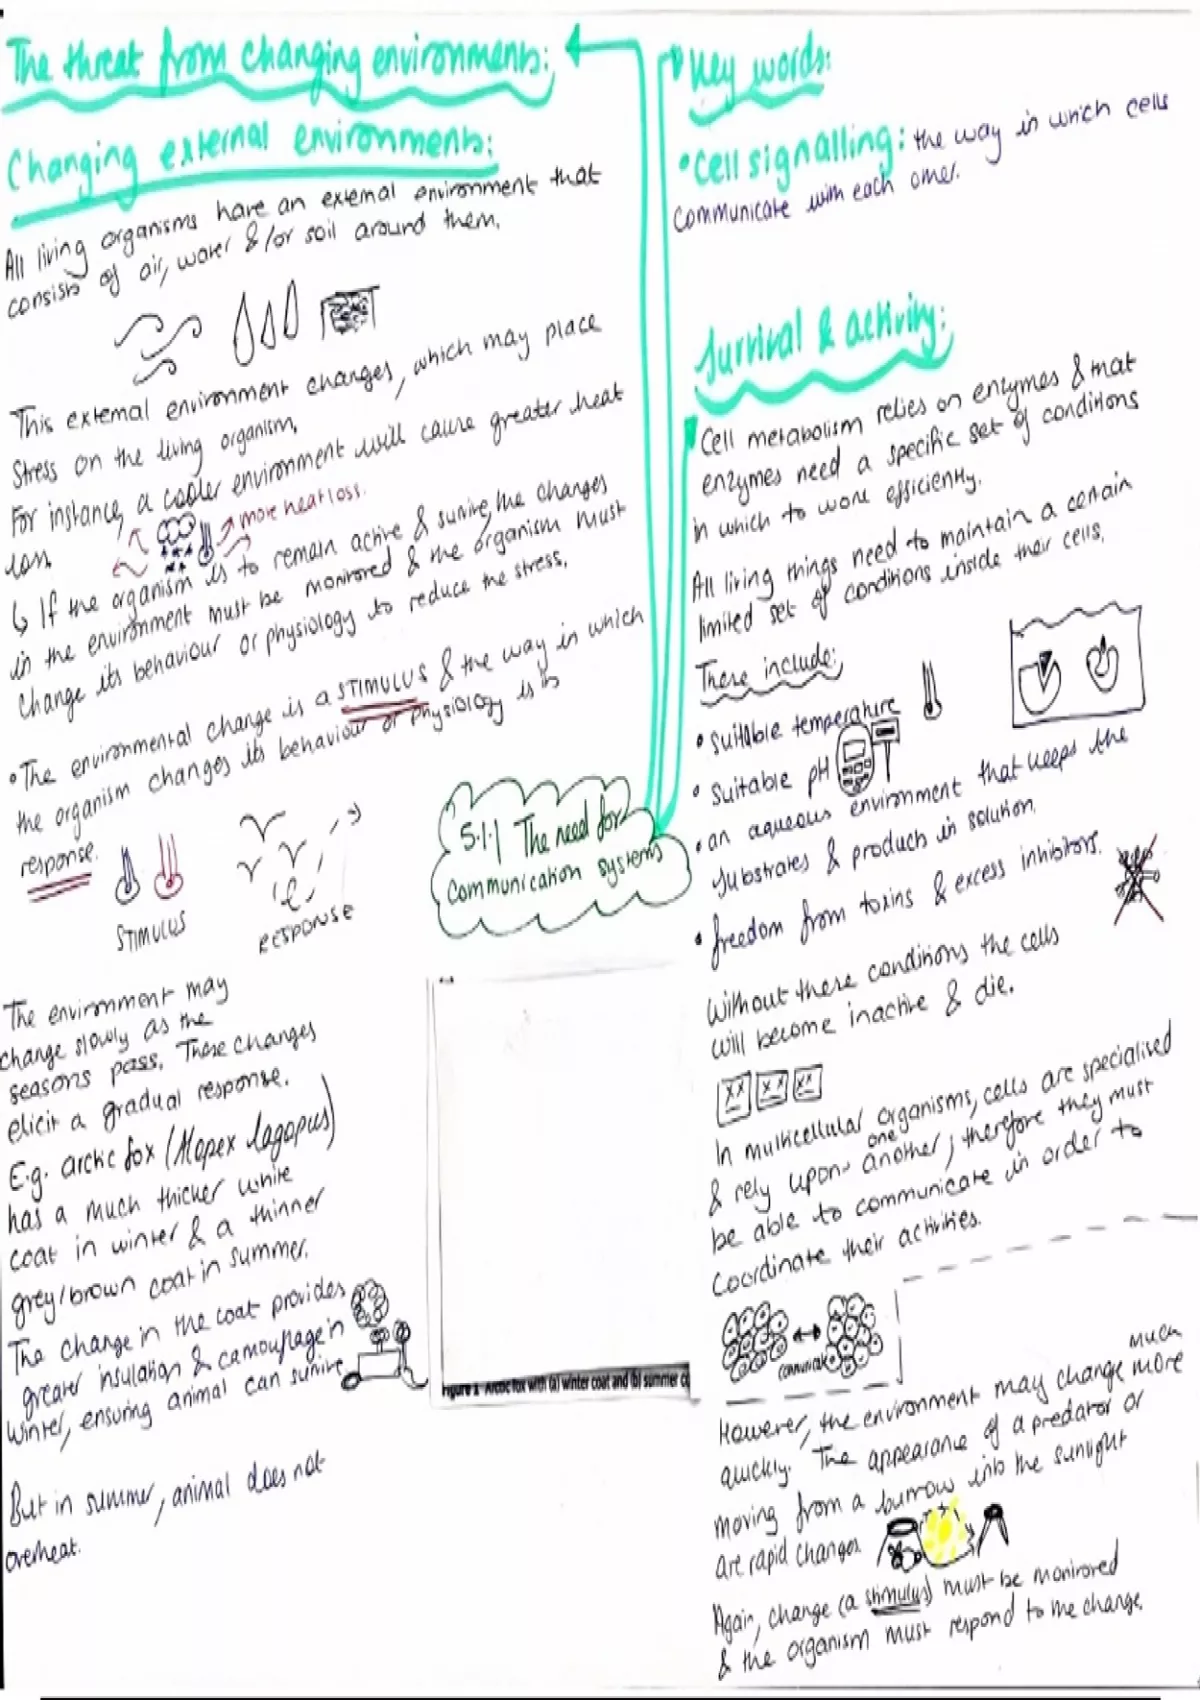 The threat from changing environments:
Changing external environments:
All living organisms have an external environment that
consists of air, water &/or soil around them.
This external environment changes, which may place
stress on the living organism.
For instance, a cooler environment will cause greater heat
loss.
more heat loss.
↳ If the organism is to remain active & survive, the changes
in the environment must be monitored & the organism must
change its behaviour or physiology to reduce the stress.
• The environmental change is a STIMULUS & the way in which
the organism changes its behaviour or physiology is its
response.
STIMULUS
RESPONSE
The environment may
change slowly as the
seasons pass. These changes
elicit a gradual response.
E.g. arctic fox (Alopex lagopus)
has a much thicker white
coat in winter & a thinner
grey/brown coat in summer.
The change in the coat provides
greater insulation & camouflage in
winter, ensuring animal can survive
But in summer, animal does not
overheat.
5.1.1 The need for
communication systems
Figure 1 Arctic fox with (a) winter coat and (b) summer
Key words:
• Cell signalling: the way in which cells
communicate with each other.
Survival & activity:
Cell metabolism relies on enzymes & that
enzymes need a specific set of conditions
in which to work efficiently.
All living things need to maintain a certain
limited set of conditions inside their cells.
These include:
• suitable temperature
• suitable pH
• an aqueous environment that keeps the
substrates & products in solution.
• freedom from toxins & excess inhibitors.
Without these conditions the cells
will become inactive & die.
In multicellular organisms, cells are specialised
& rely upon one another, therefore they must
be able to communicate in order to
coordinate their activities.
communicate
However, the environment may change much more
quickly. The appearance of a predator or
moving from a burrow into the sunlight
are rapid changes.
Again, change (a stimulus) must be monitored
& the organism must respond to the change.